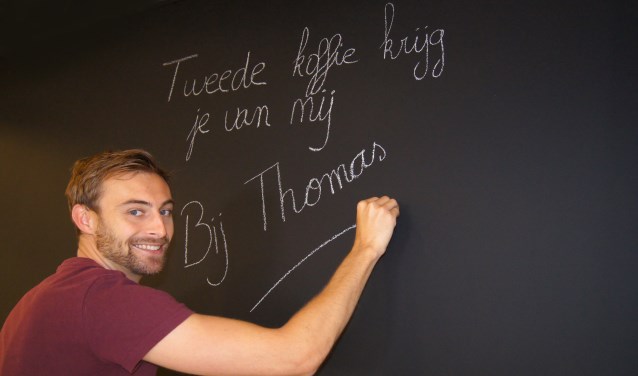 Tweede koffie krijg
je van mij
Bij Thomas